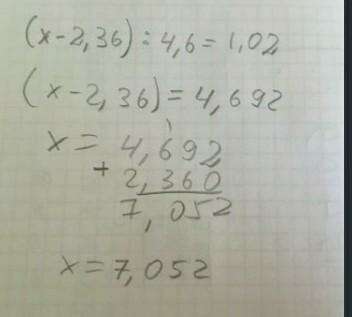 (x-2,36):4,6=1,02
(x-2,36)=4,692
x= 4,692
+ 2,360
7,052
x=7,052